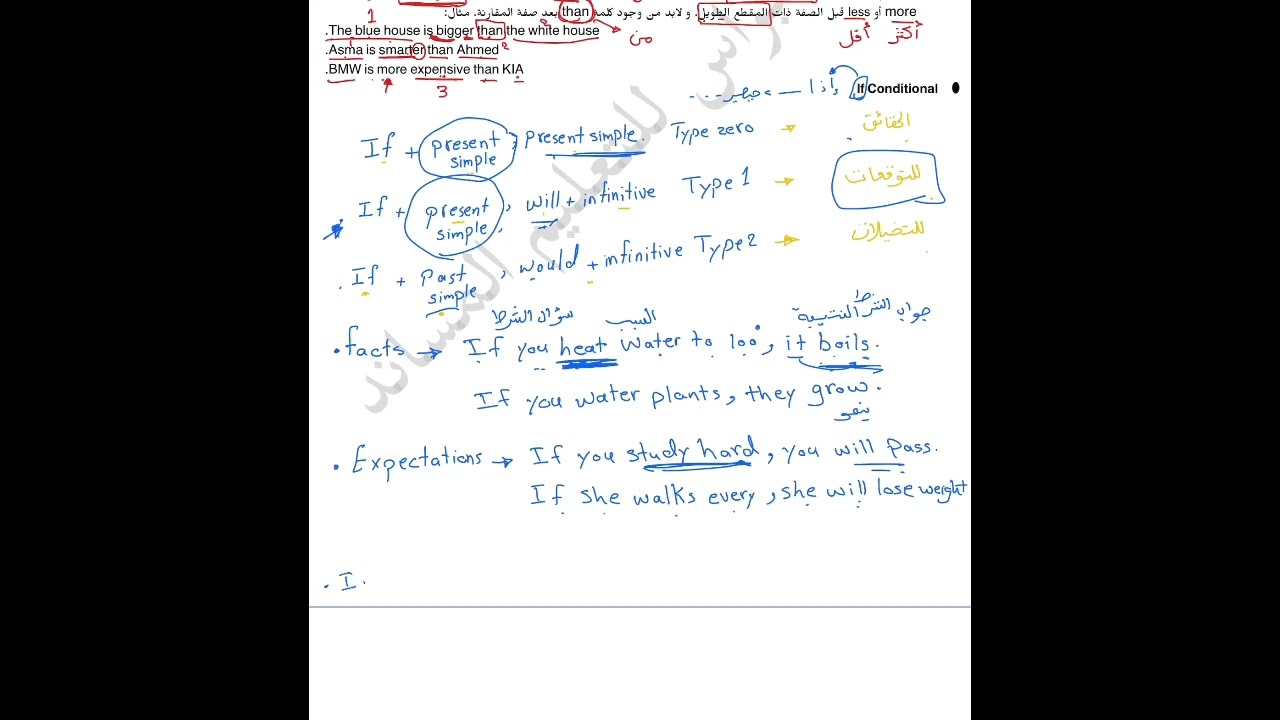 more أو less قبل الصفة ذات المقطع الطويل. ولابد من وجود كلمة than بعد صفة المقارنة. مثال:
1
.The blue house is bigger than the white house
من
أقل
أكثر
.Asma is smarter than Ahmed
2
.BMW is more expensive than KIA
3
If Conditional
If + present simple, present simple. Type zero → الحقائق
If + present simple, will + infinitive Type 1 → للتوقعات
.If + Past simple, would + infinitive Type 2 → للتخيلات
سؤال الشرط
السبب
جواب الشرط النتيجة
. facts → If you heat water to 100°, it boils.
If you water plants, they grow.
ينمو
. Expectations → If you study hard, you will pass.
If she walks every, she will lose weight
. I.
للتعليم المساند